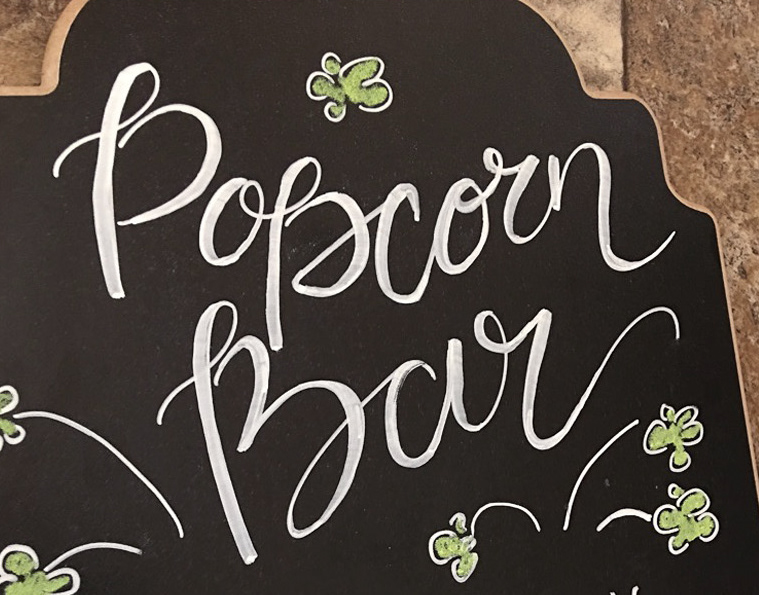 Popcorn
Bar